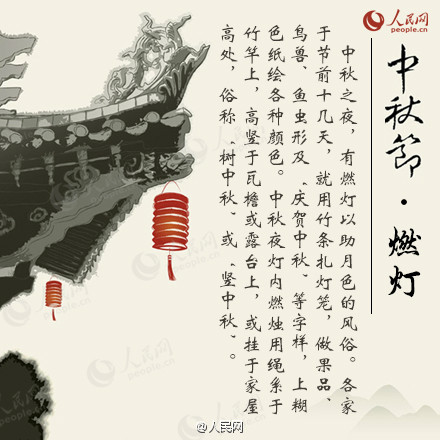 人民网
people.cn
中秋節·燃灯
中秋之夜，有燃灯以助月色的风俗。各家
于节前十几天，就用竹条扎灯笼，做果品、
鸟兽、鱼虫形及“庆贺中秋”等字样，上糊
色纸绘各种颜色。中秋夜灯内燃烛用绳系于
竹竿上，高竖于瓦檐或露台上，或挂于家屋
高处，俗称“树中秋”或“竖中秋”。
人民网
people.cn
人民网
people.cn
人民网
people.cn
@人民网